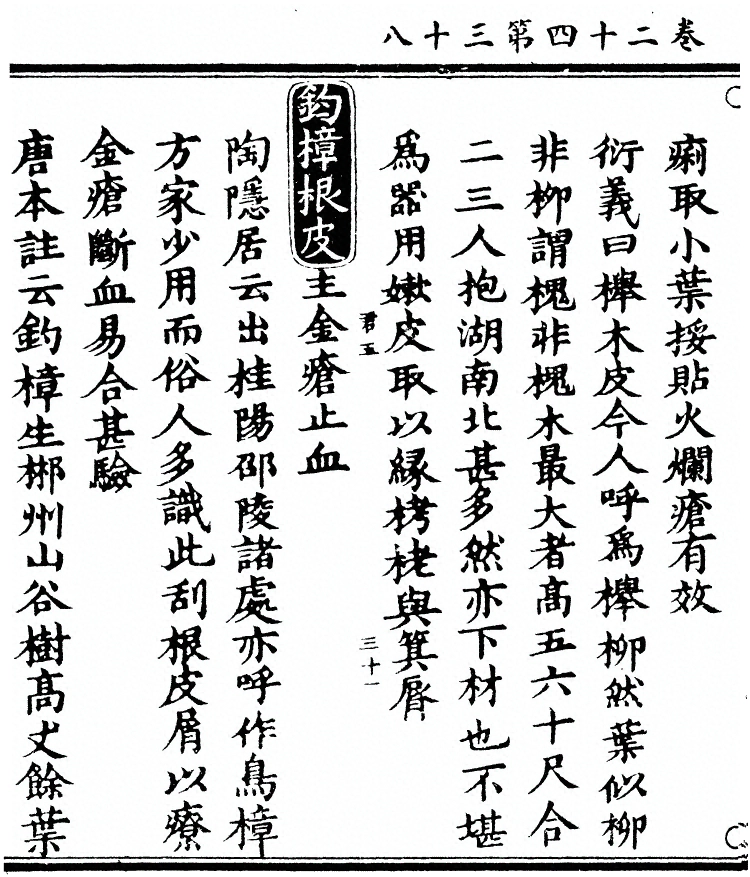 卷二十四第三十八
痢取小葉挼貼火爛瘡有效
衍義曰櫸木皮今人呼爲櫸柳然葉似柳
非柳謂槐非槐木最大者高五六十尺合
二三人抱湖南北甚多然亦下材也不堪
爲器用嫩皮取以緣栲栳與箕脣
君五
三十一
釣樟根皮主金瘡止血
陶隱居云出桂陽邵陵諸處亦呼作鳥樟
方家少用而俗人多識此刮根皮屑以療
金瘡斷血易合甚驗
唐本註云釣樟生郴州山谷樹高丈餘葉